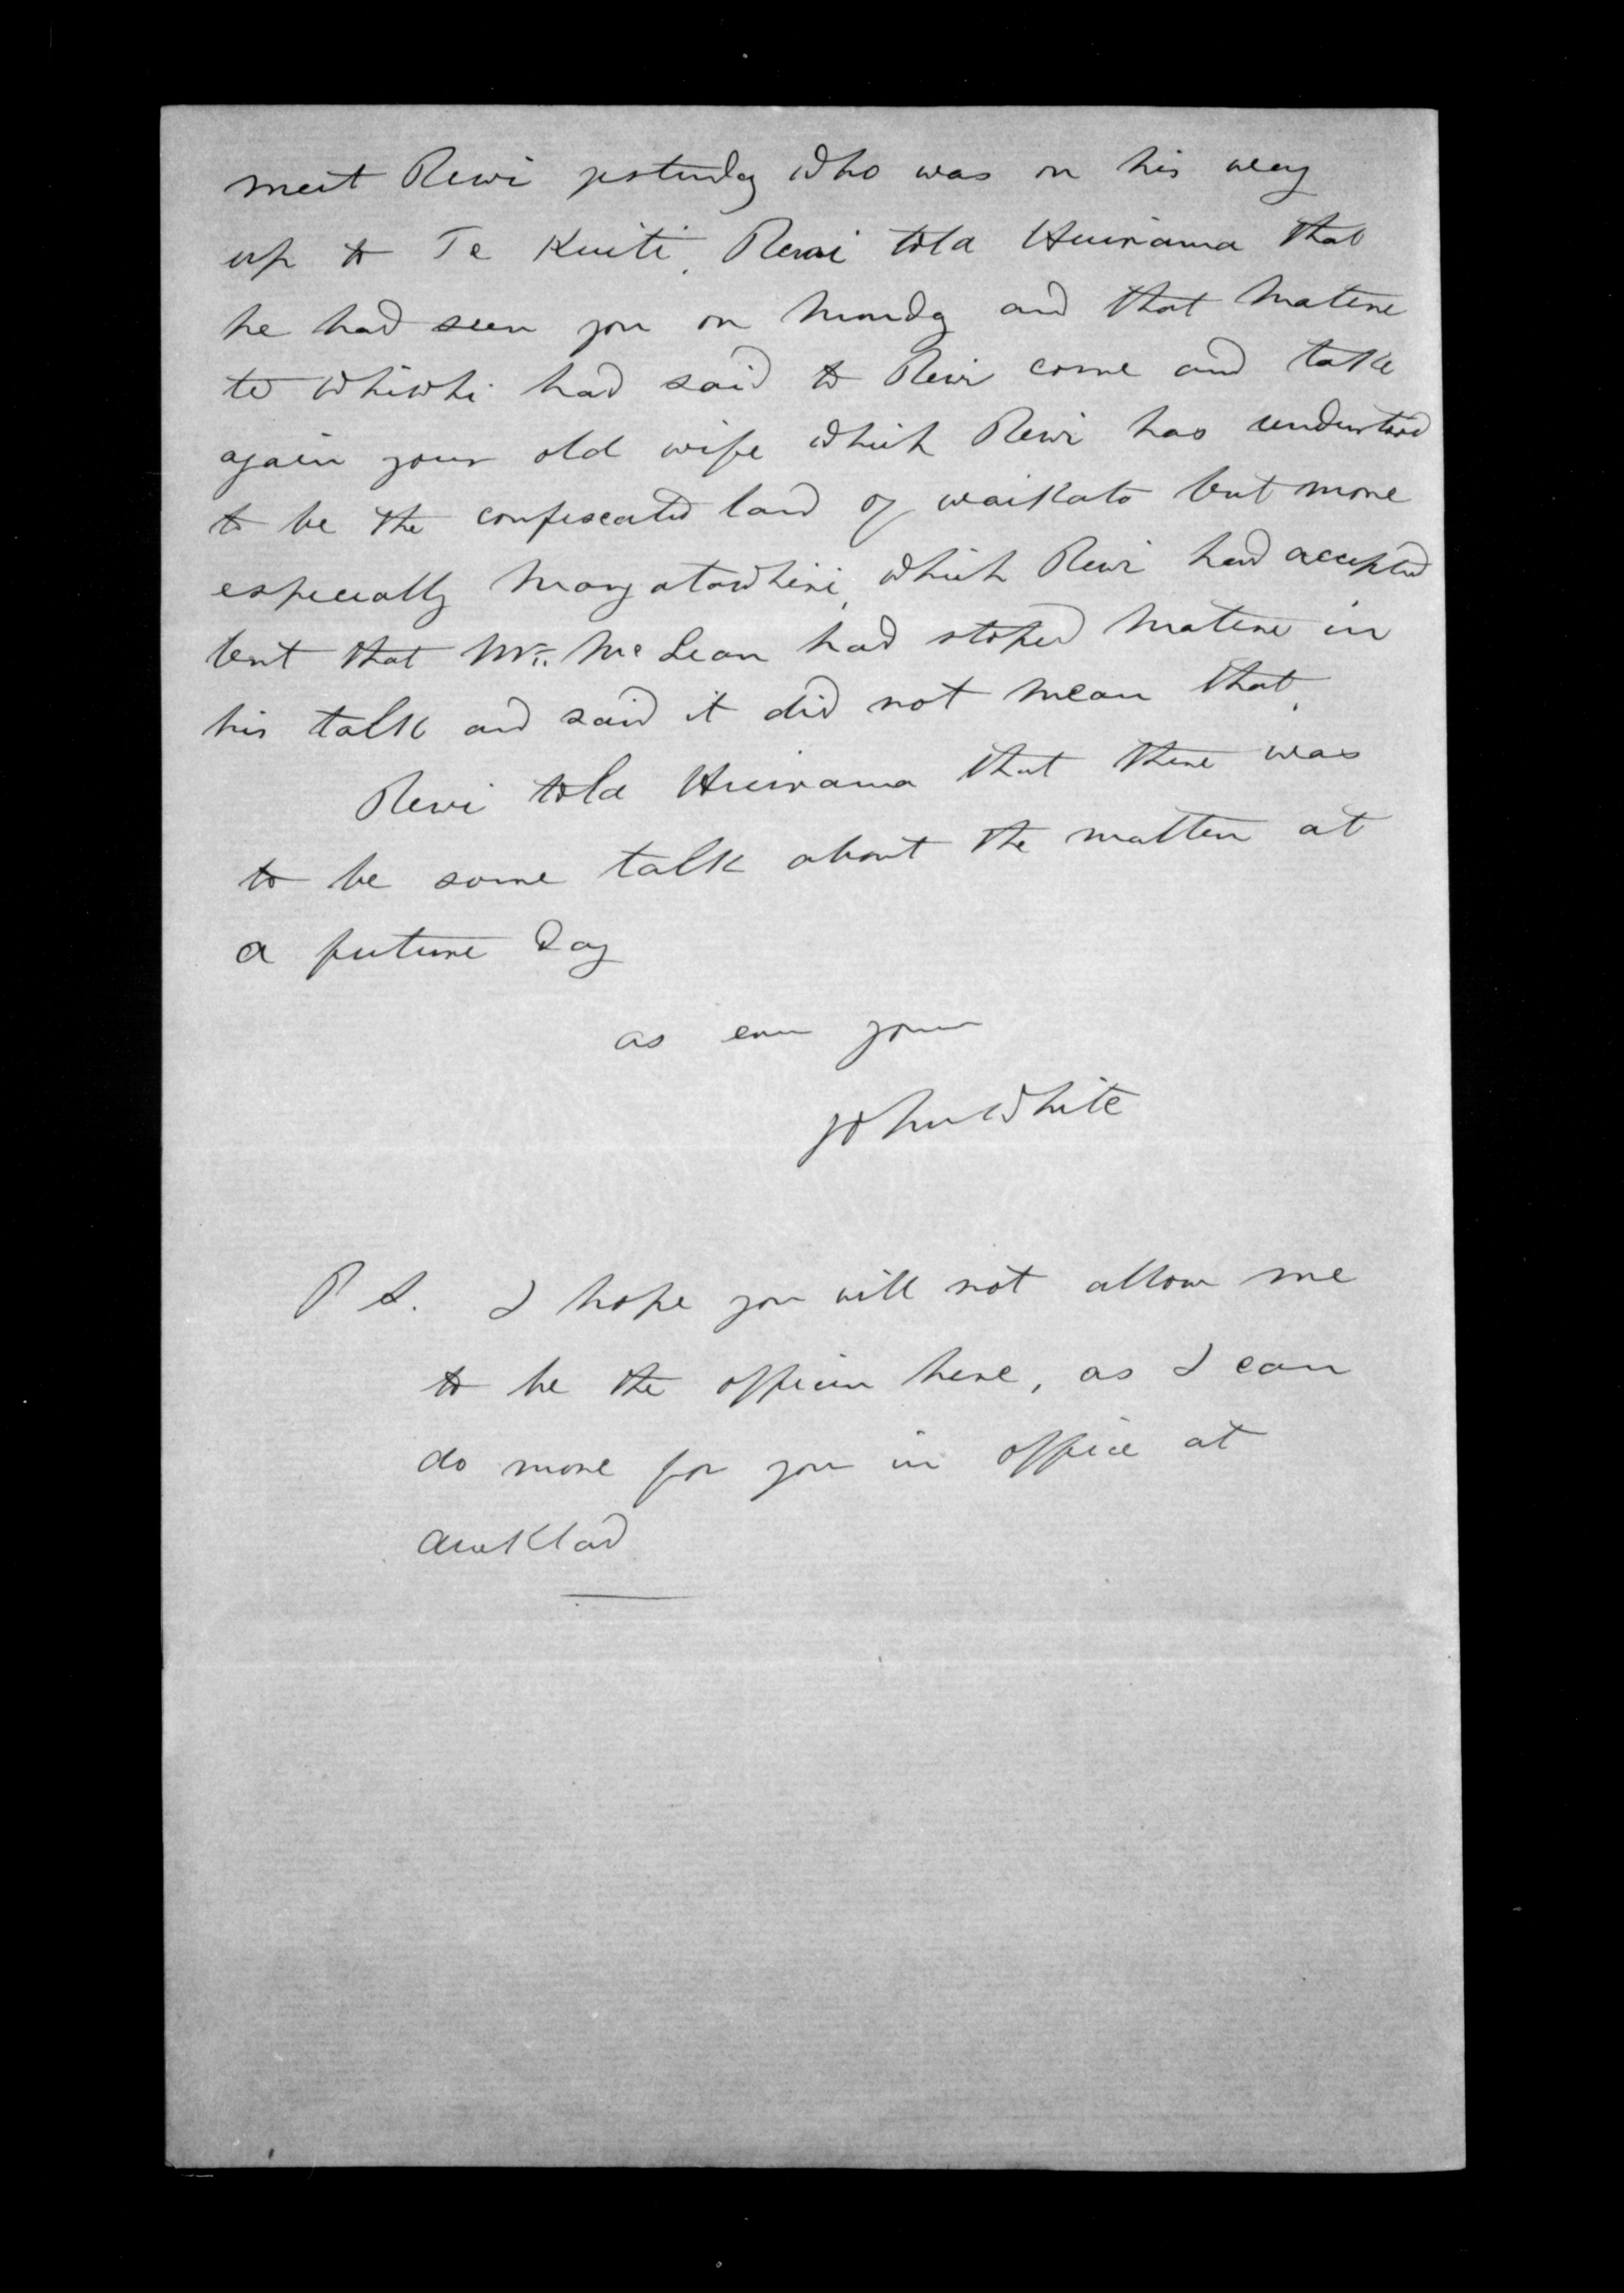 meet Rewi yesterday who was on his way
up to Te Kuiti, Rewi told Huirama that
he had seen you on Monday and that Matene
te Whiwhi had said to Rewi come and take
again your old wife which Rewi has understood
to be the confiscated land of Waikato but more
especially Mangatawhiri, which Rewi had accepted
but that Mr. McLean had stoped Matene in
his talk and said it did not mean that.
Rewi told Huirama that there was
to be some talk about the matter at
a future day
as ever yours
John White
P S. I hope you will not allow me
to be the officer here, as I can
do more for you in office at
Auckland